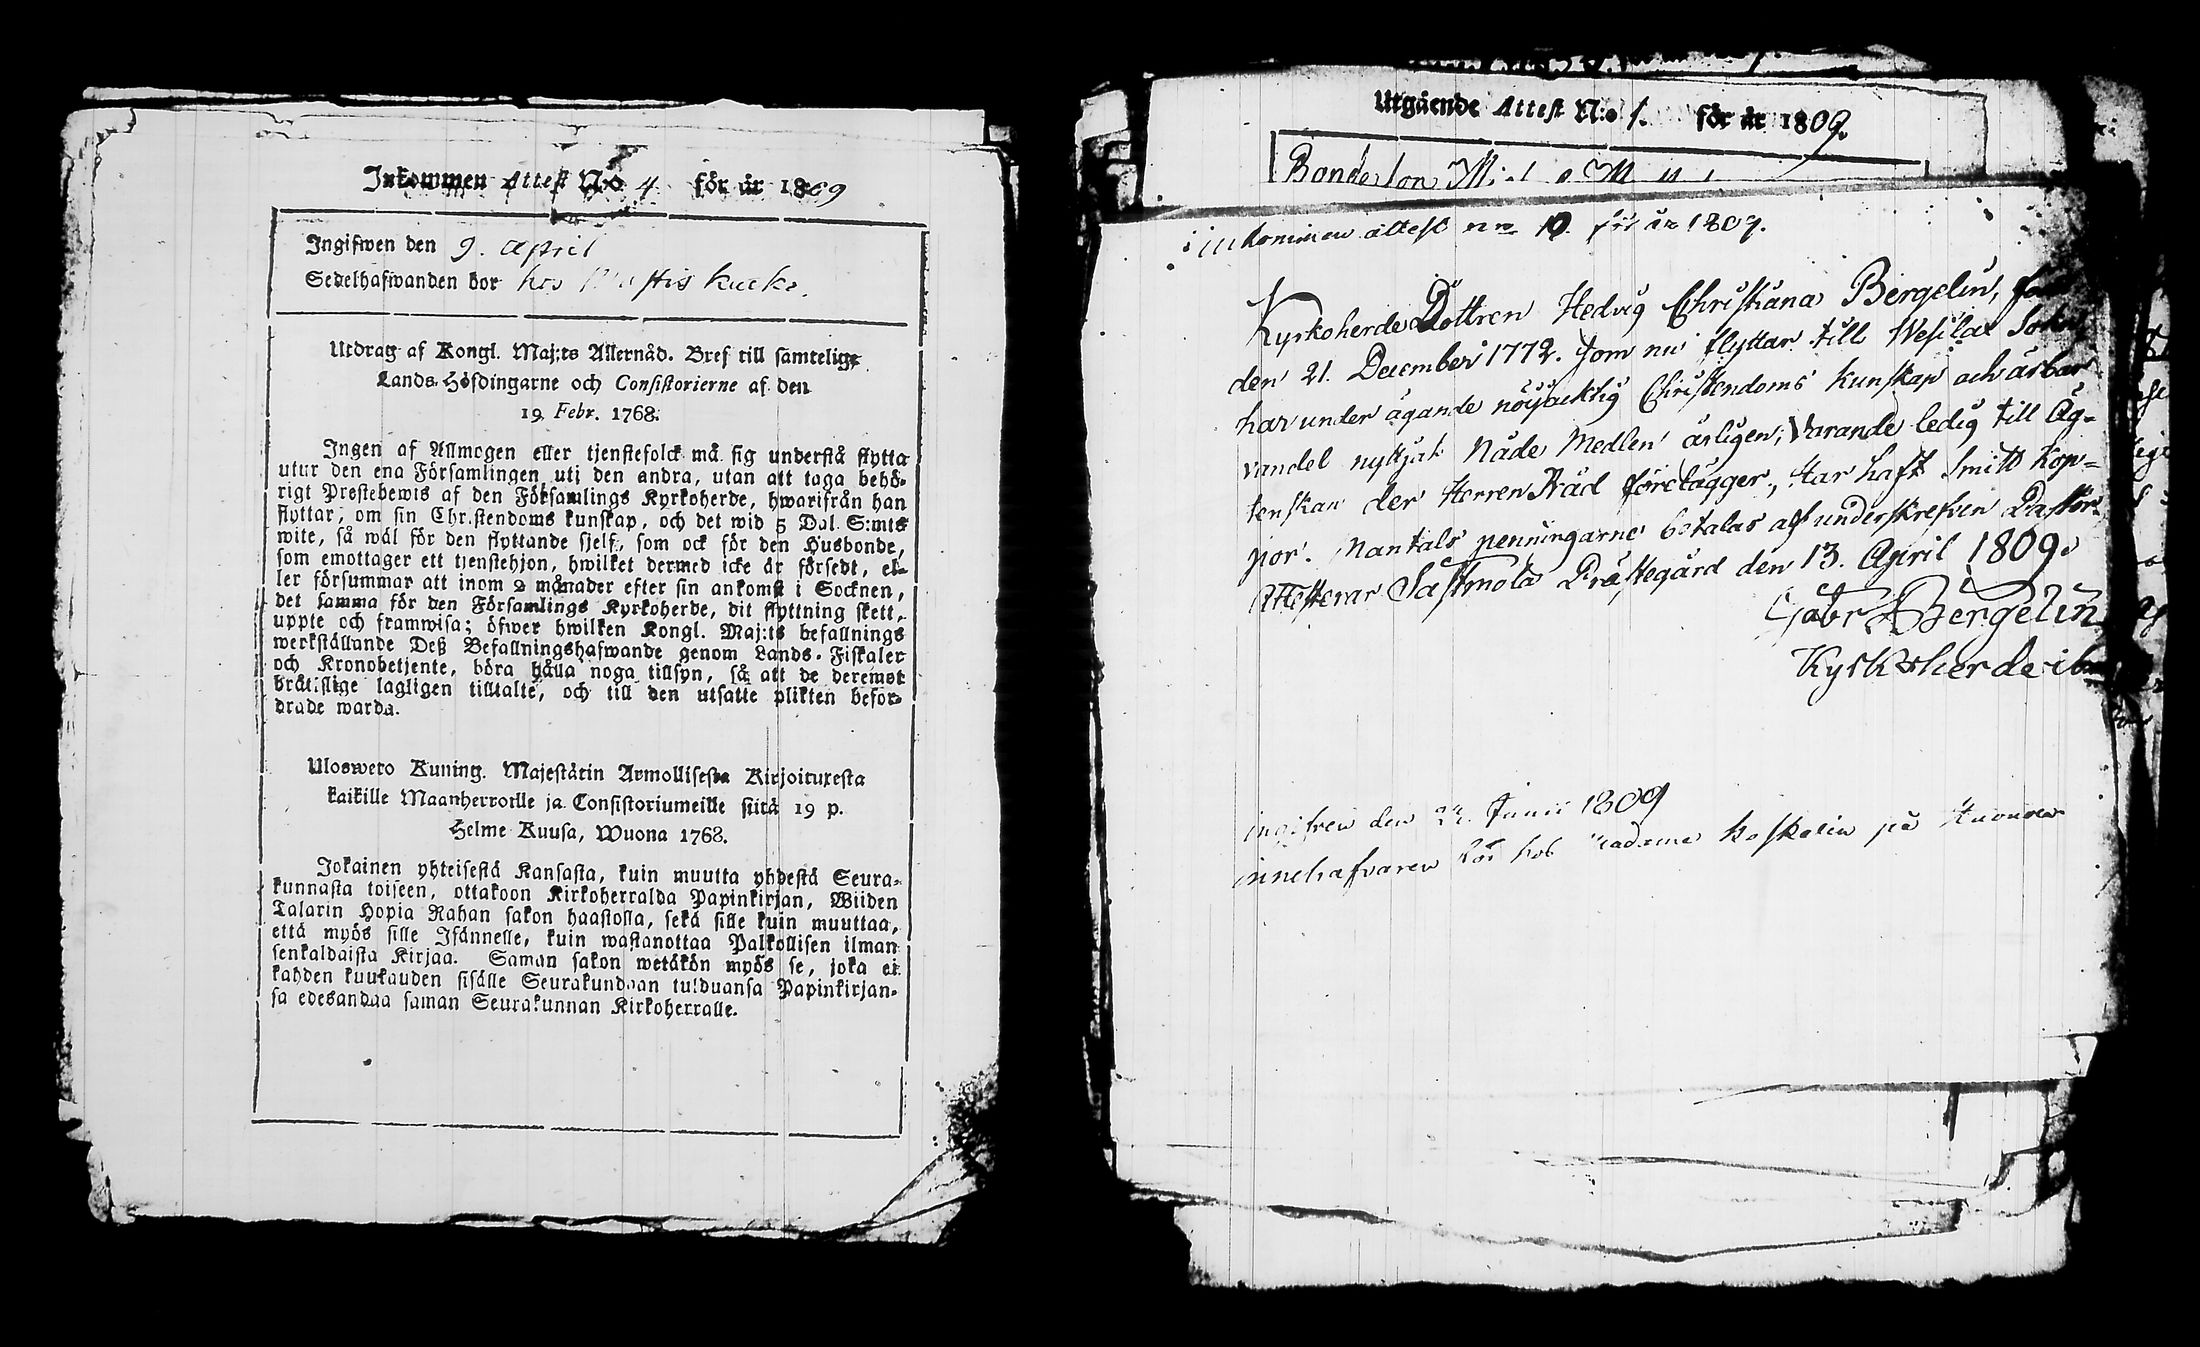 Inkommen Attest N:o 4. för år 1809
Ingifwen den 9. April
Sedelhafwanden bor hos
Utdrag af Kongl. Maj:ts Allernåd. Bref till samtelige
Lands-Höfdingarne och Consistorierne af den
19 Febr. 1768.
Ingen af Allmogen eller tjenstefolck må sig understå flytta
utur den ena Församlingen uti den andra, utan att taga behö-
rigt Prestebewis af den Församlings Kyrkoherde, hwarifrån han
flyttar, om sin Christendoms kunskap, och det wid 5 Dal. S:mts
wite, så wäl för den flyttande sjelf, som ock för den Husbonde,
som emottager ett tjenstehjon, hwilket dermed icke är försedt, el-
ler försummar att inom 2 månader efter sin ankomst i Socknen,
det samma för den Församlings Kyrkoherde, dit flyttning skett,
uppte och framwisa; öfwer hwilken Kongl. Maj:ts befallnings
werkställande Deß Befallningshafwande genom Lands-Fiskaler
och Kronobetjente, böra hålla noga tillsyn, så att de deremot
brätslige lagligen tilltalte, och till den utsatte plikten befor-
drade warda.
Ulosweto Kuning. Majestätin Armollisesta Kirjoituxesta
kaikille Maanherroille ja Consistoriumeille siitä 19 p.
Helme Kuusa, Wuona 1768.
Jokainen yhteisestä Kansasta, kuin muutta yhdestä Seura-
kunnasta toiseen, ottakoon Kirkoherralda Papinkirjan, Wiiden
Talarin Hopia Rahan sakon haastolla, sekä sille kuin muuttaa,
että myös sille Isännelle, kuin wastanottaa Palkollisen ilman
senkaldaista Kirjaa. Saman sakon wetäkön myös se, joka ei
kahden kuukauden sisälle Seurakundaan tulduansa Papinkirjan-
sa edesandaa saman Seurakunnan Kirkoherralle.
Utgående Attest N:o 1. för år 1809.
Bondeson
inkommen attest no 10 för år 1809.
Kyrkoherde Dottren Hedvig Christiana Bergelin, född
den 21. December 1772. som nu flyttar till Wesilax Sokn
har under ägande nöyacktig Christendoms kunskap och ärbar
vandel nyttjat Nåde Medlen årligen; Varande ledig till Äg-
tenskap der Herren Råd förelägger, Har haft Smitt Kop-
por. Mantals penningarne betalas af underskrefven Pastor
Attesterar Sastmola Prästegård den 13. April 1809.
Gabr Bergelin
Kyrkoherde ib
ingifven den 22. Junii 1809
innehafvaren bor hos Madame på